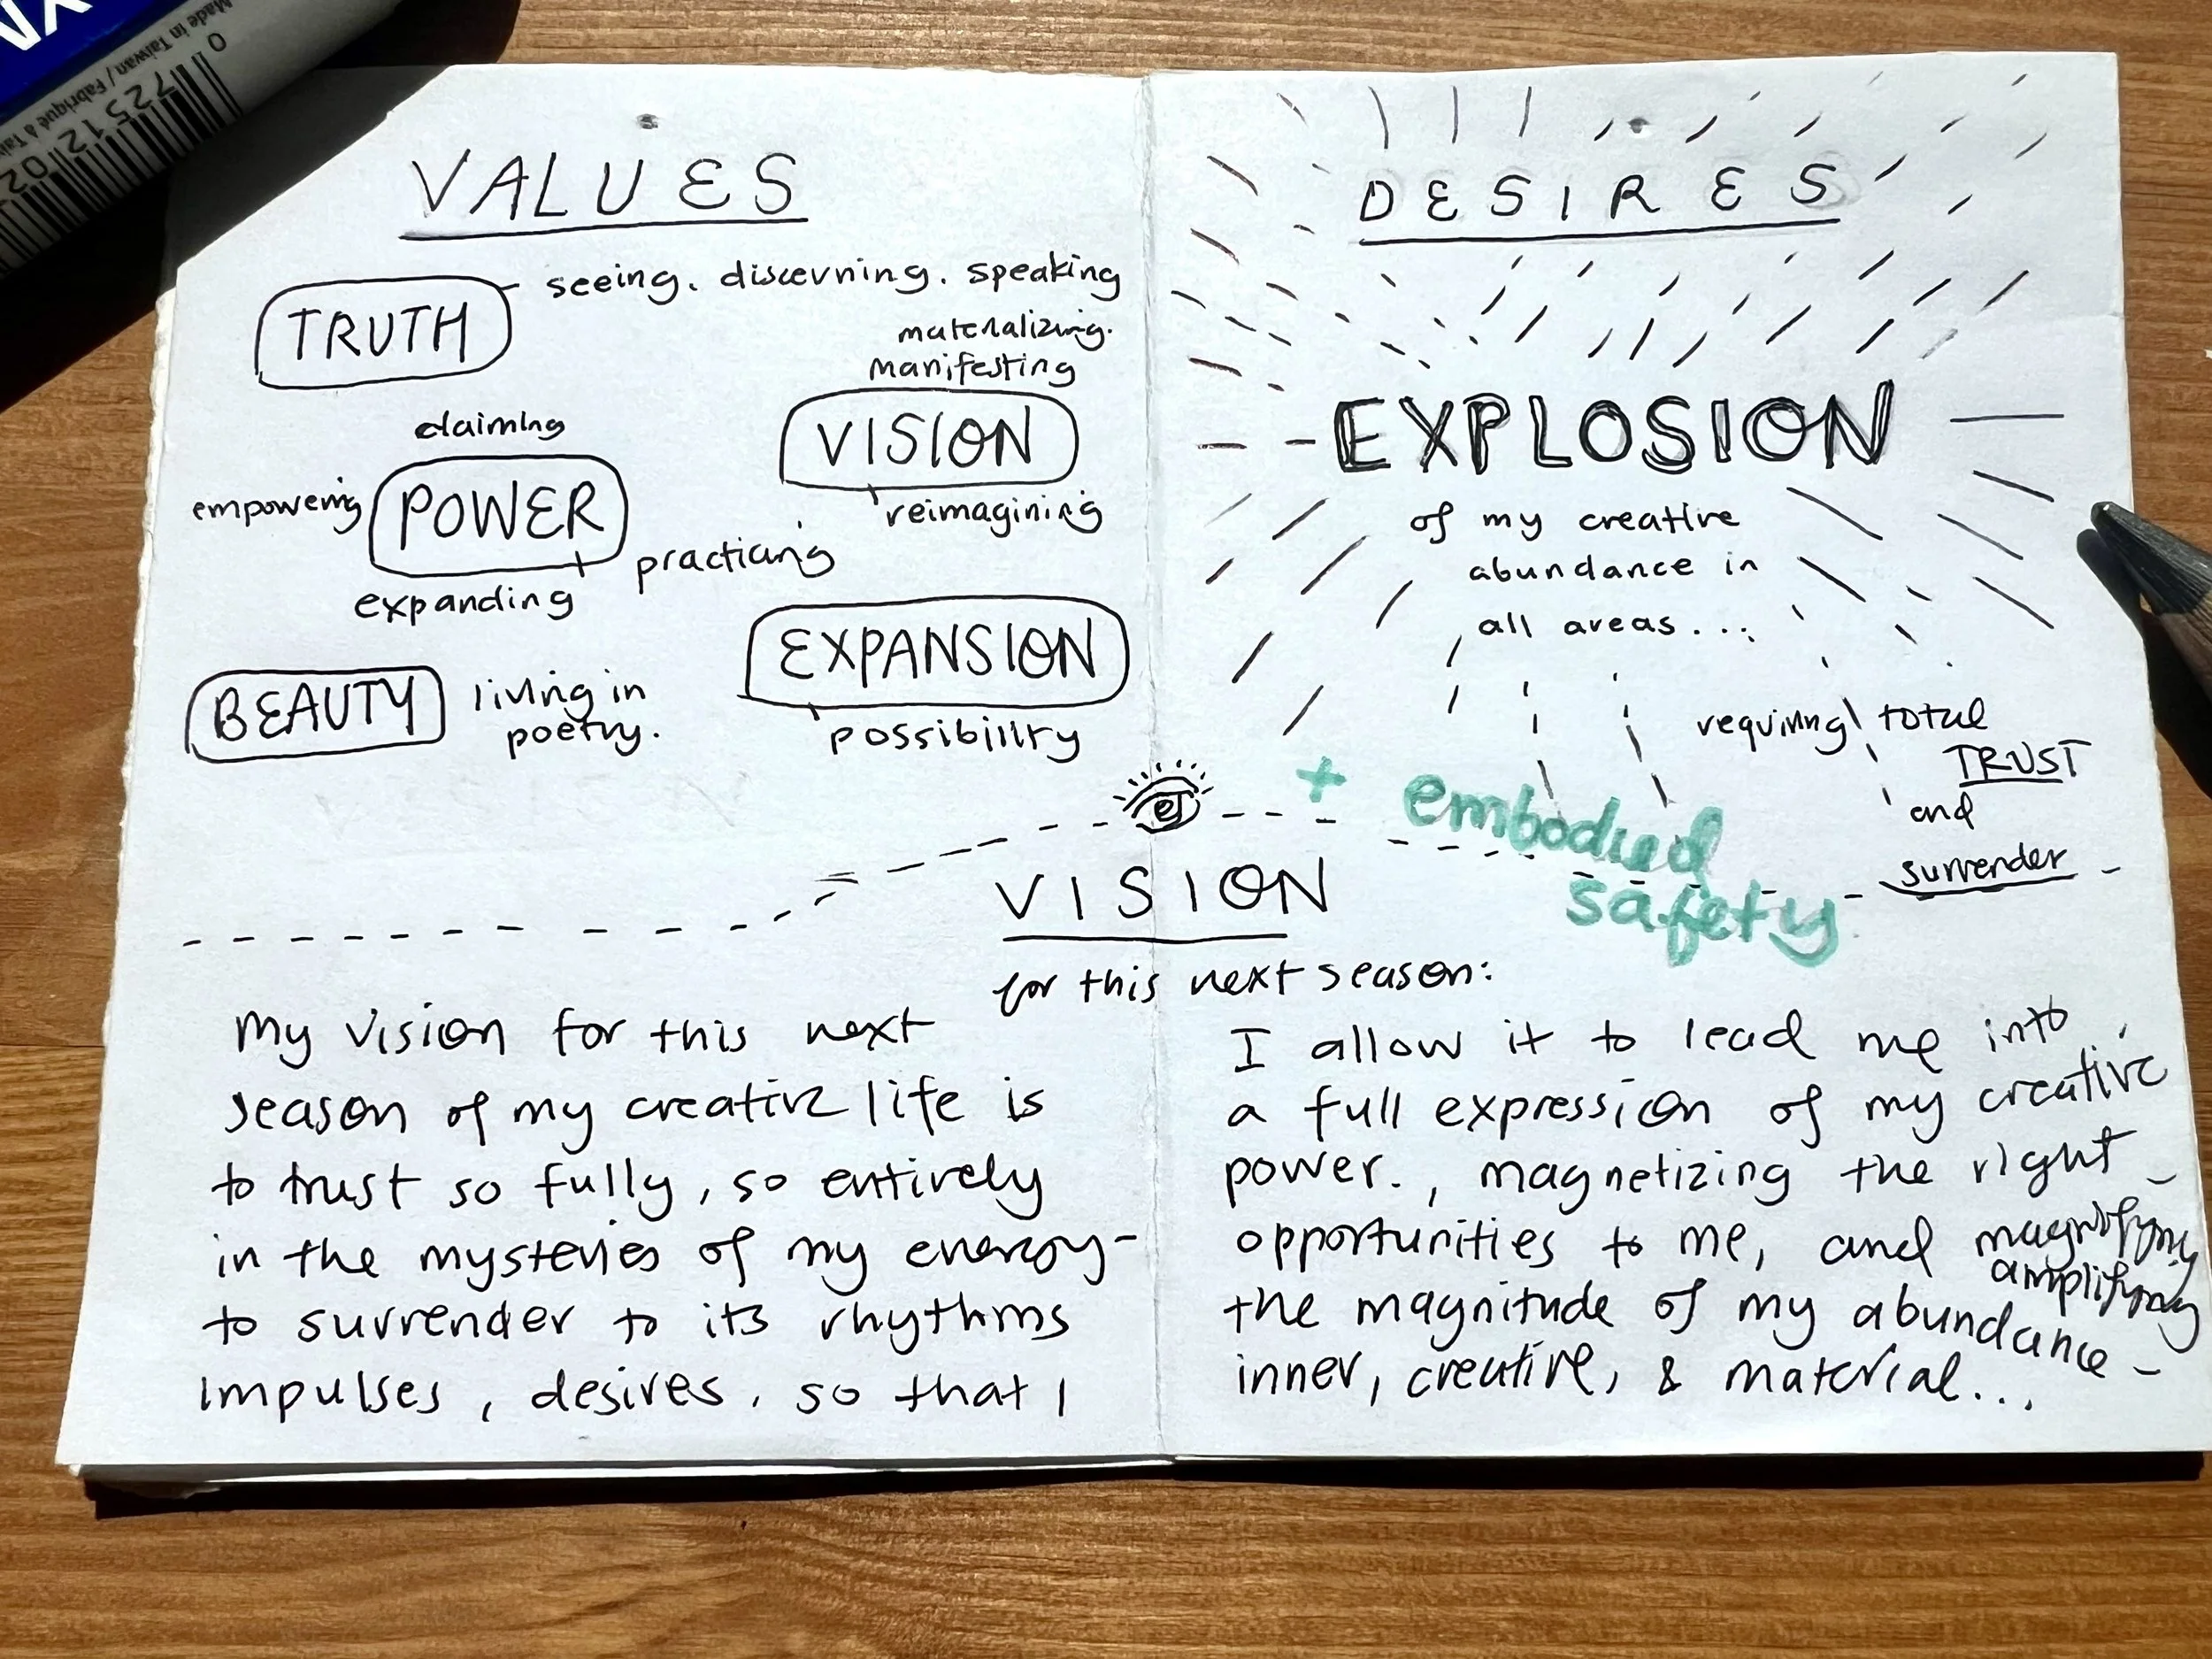 Made in Taiwan / Fabriqué à
0 72512 02
VALUES
TRUTH
seeing. discerning. speaking
materializing.
manifesting
VISION
reimagining
claiming
empowering
POWER
practicing
expanding
EXPANSION
possibility
BEAUTY
living in
poetry.
DESIRES
EXPLOSION
of my creative
abundance in
all areas...
requiring total
TRUST
and
surrender
+ embodied
safety
VISION
for this next season:
My vision for this next
season of my creative life is
to trust so fully, so entirely
in the mysteries of my energy-
to surrender to its rhythms
impulses, desires, so that I
I allow it to lead me into
a full expression of my creative
power., magnetizing the right
opportunities to me, and magnifying
amplifying
the magnitude of my abundance-
inner, creative, & material...